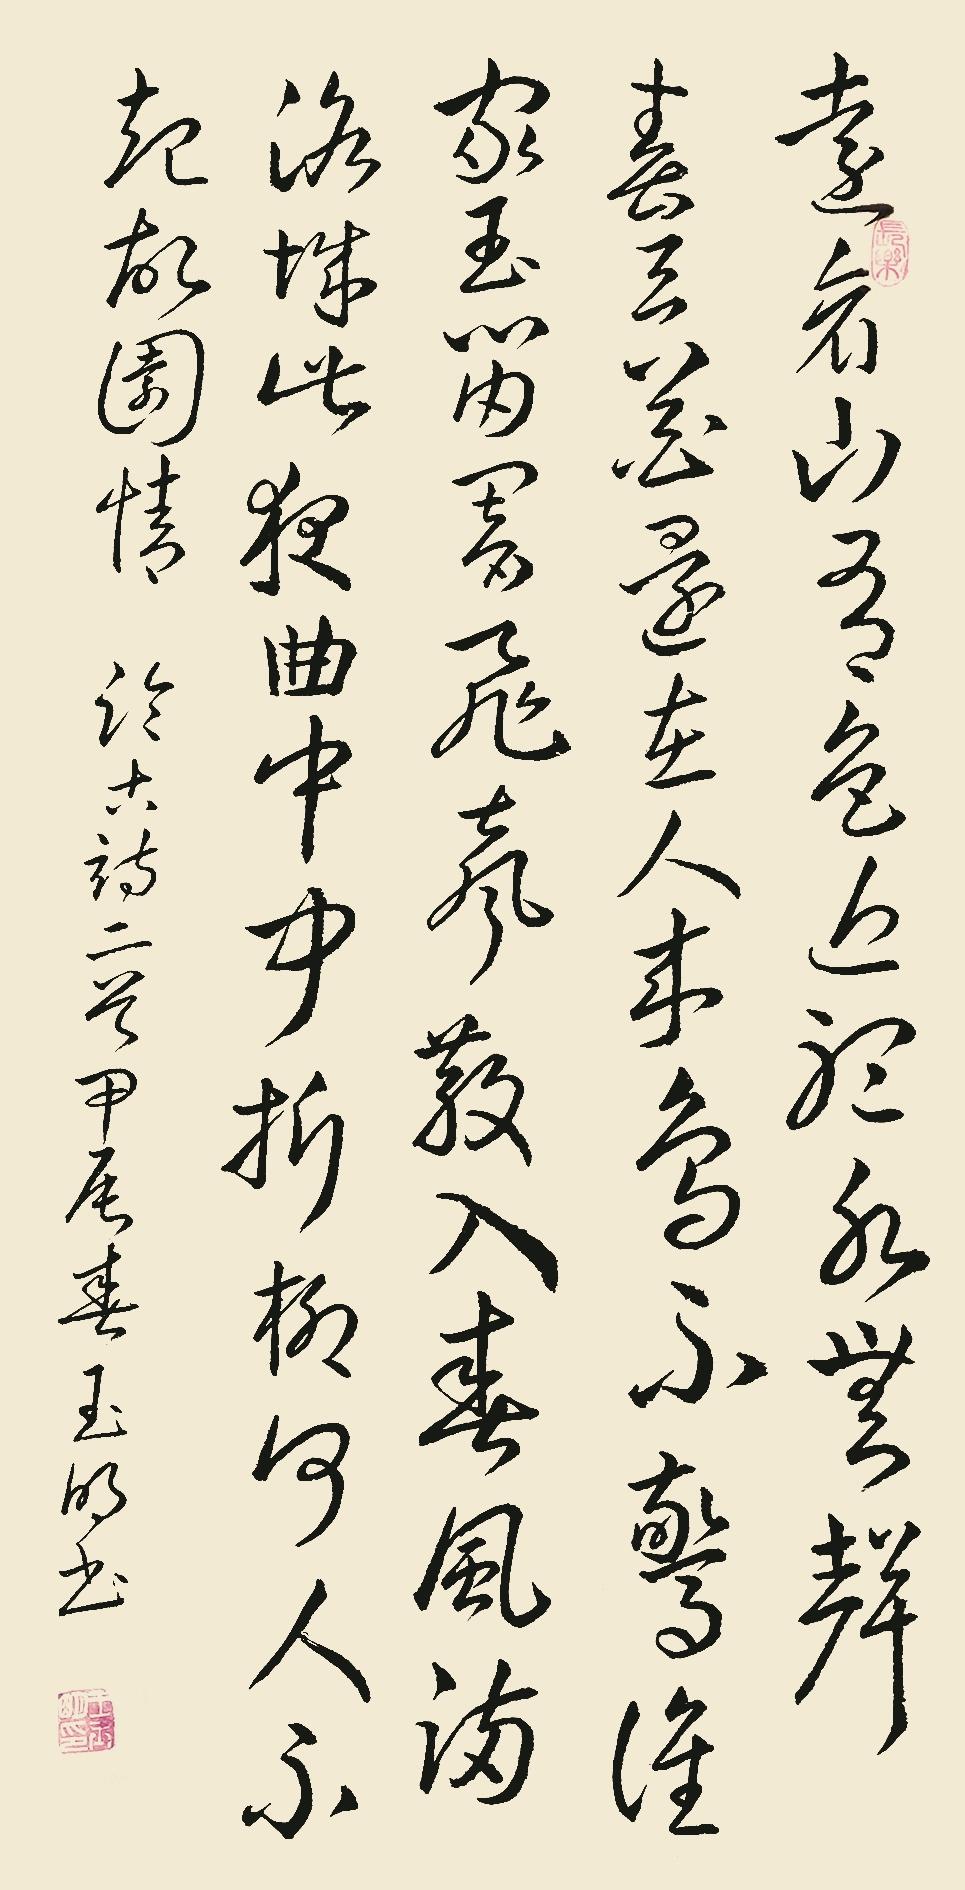 遠看山有色近聽水無聲
長樂
春去花還在人來鳥不驚誰
家玉笛闇飛聲散入春風滿
洛城此夜曲中聞折柳何人不
起故園情 錄古詩二首甲辰春玉明書